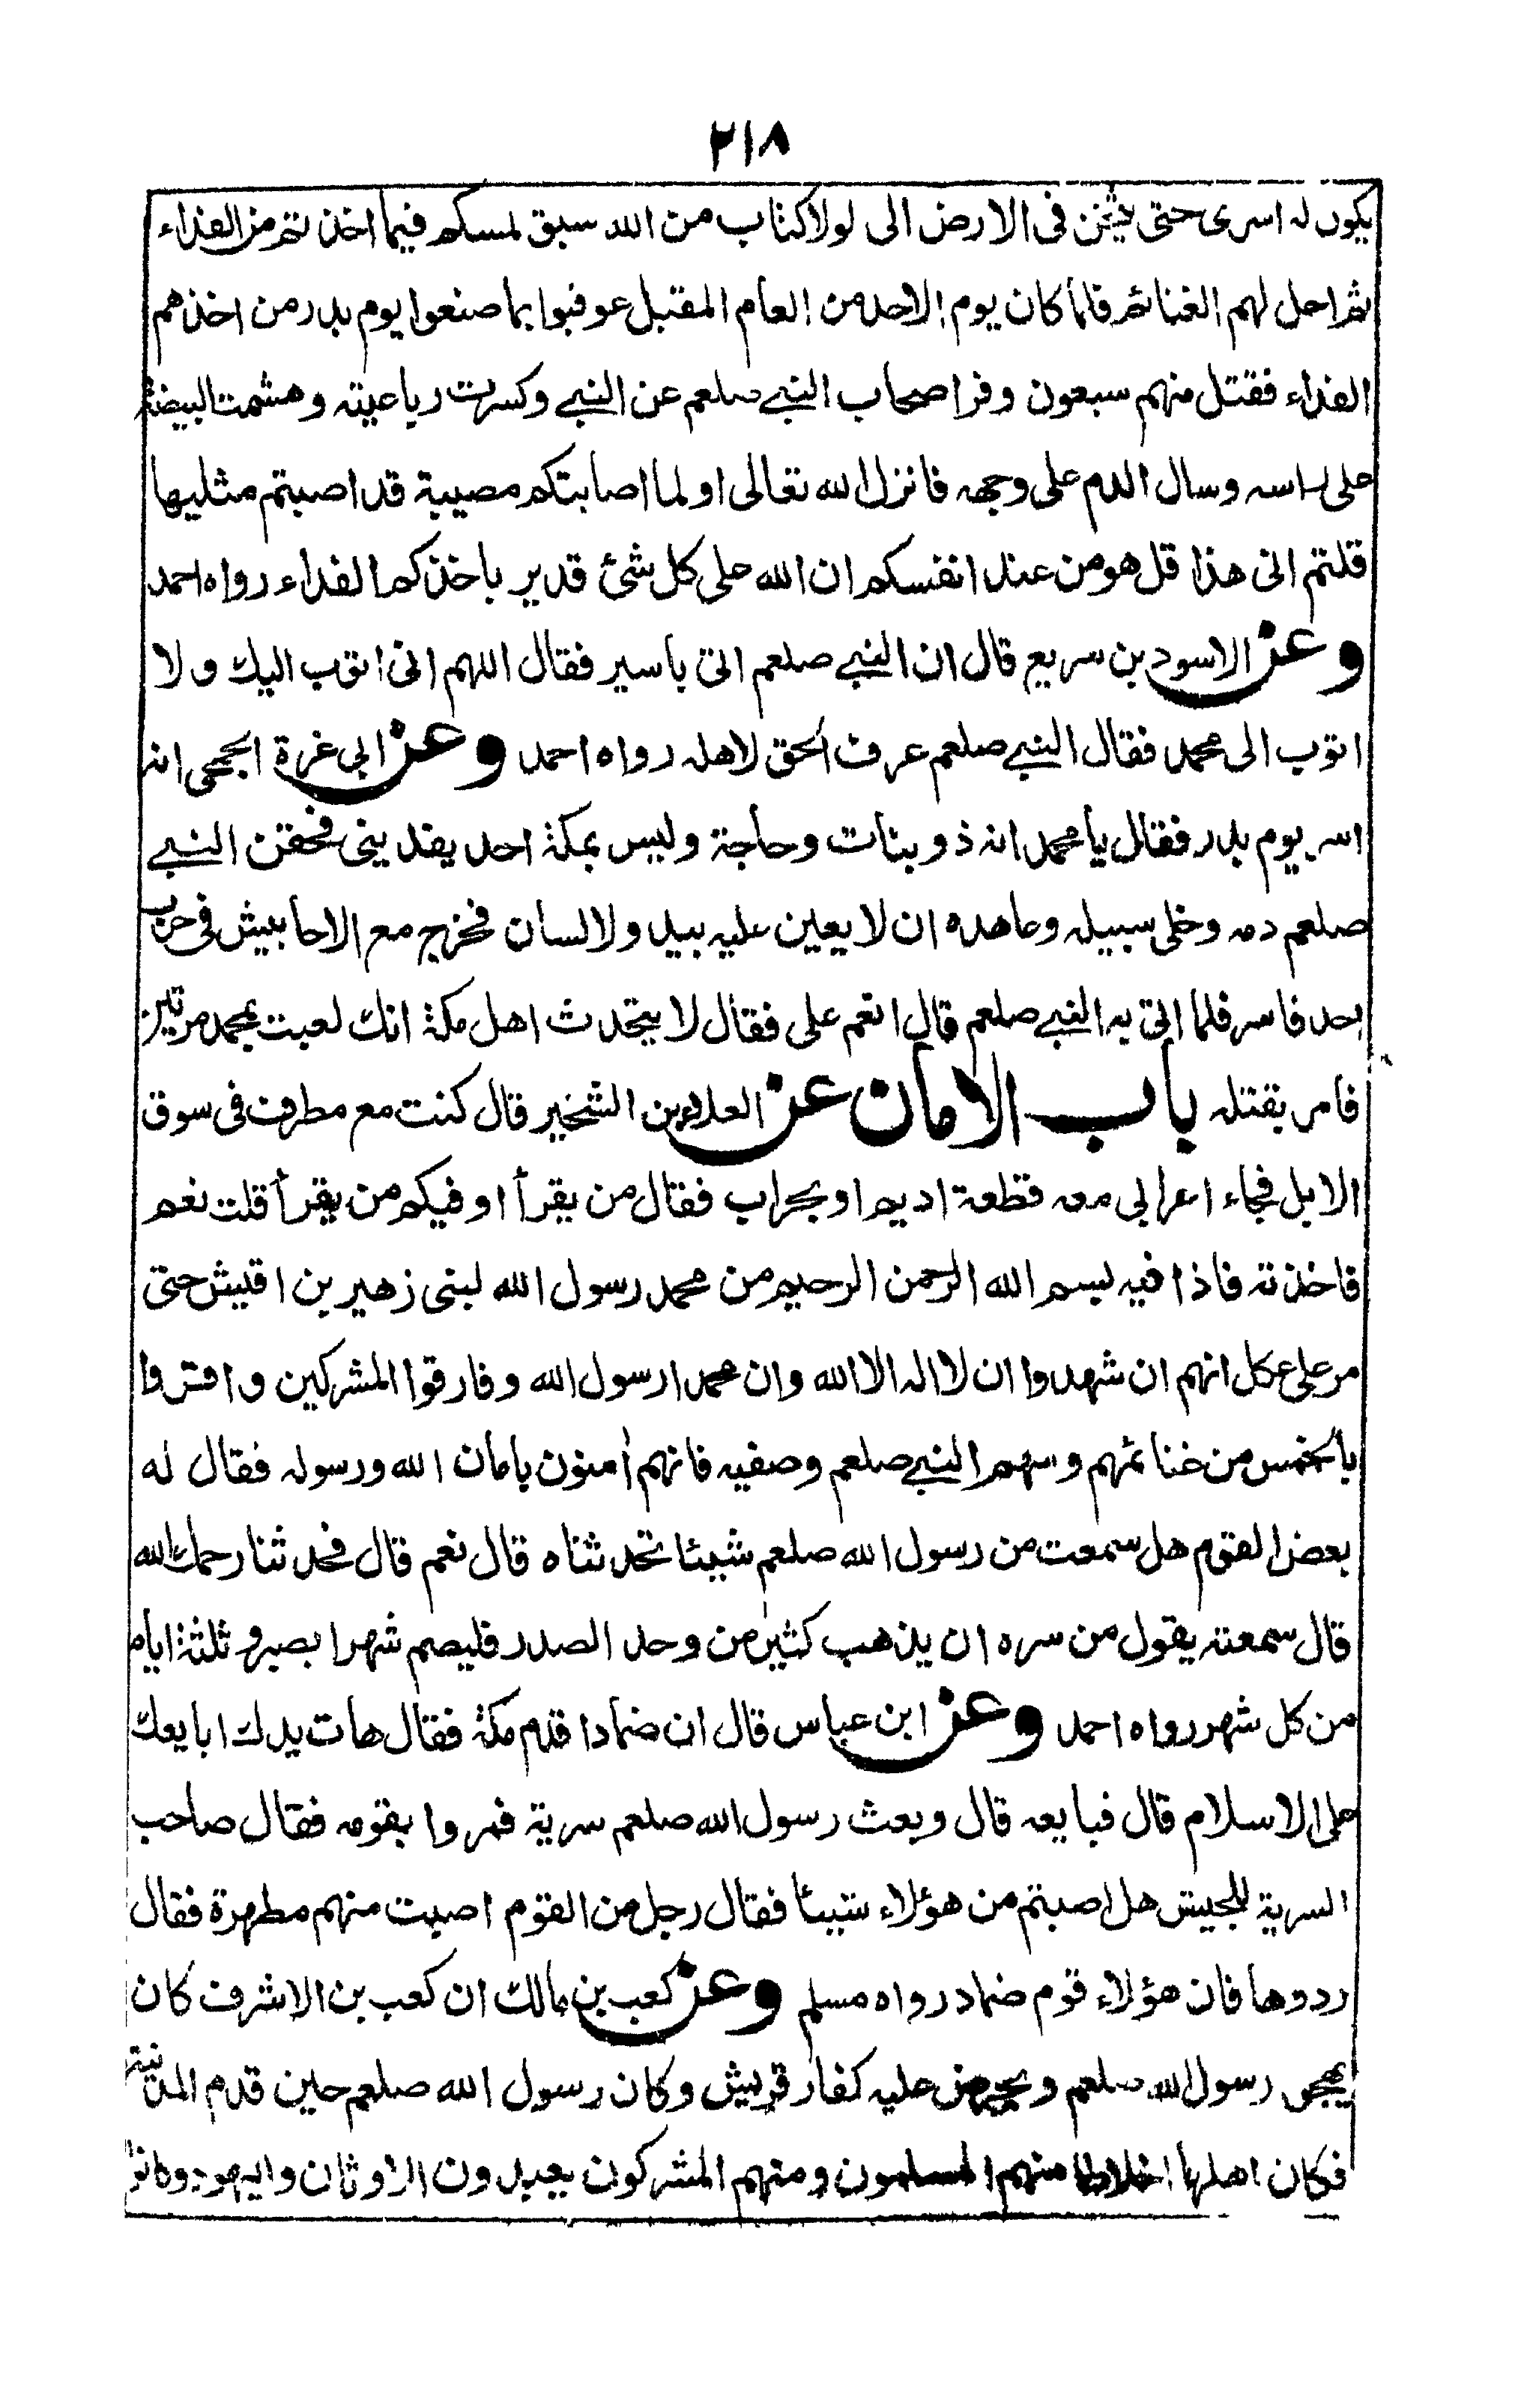 ٢١٨
يكون له اسرى حتى يثخن فى الارض الى لولا كتاب من الله سبق لمسكم فيما اخذتم من الفداء
ثم احل لهم الغنائم فلما كان يوم الاحد من العام المقبل عوقبوا بما صنعوا يوم بدر من اخذهم
الفداء فقتل منهم سبعون وفر اصحاب النبي صلعم عن النبي وكسرت رباعيته وهشمت البيضة
على راسه وسال الدم على وجهه فانزل الله تعالى اولما اصابتكم مصيبة قد اصبتم مثليها
قلتم انى هذا قل هو من عند انفسكم ان الله على كل شئ قدير باخذكم الفداء رواه احمد
وعن الاسود بن سريع قال ان النبي صلعم اتى باسير فقال اللهم انى اتوب اليك ولا
اتوب الى محمد فقال النبي صلعم عرف الحق لاهله رواه احمد وعن ابي غرة الجمحى انه
اسر يوم بدر فقال يا محمد انه ذو بنات وحاجة وليس بمكة احد يفدينى فحقن النبي
صلعم دمه وخلى سبيله وعاهده ان لا يعين عليه بيد ولا لسان فخرج مع الاحابيش فى حرب
احد فاسر فلما اتى به النبي صلعم قال انعم على فقال لا يتحدث اهل مكة انك لعبت بمحمد مرتين
فامر بقتله باب الامان عن العلاء بن الشخير قال كنت مع مطرف فى سوق
الابل فجاء اعرابي معه قطعة اديم او بجراب فقال من يقرأ او فيكم من يقرأ قلت نعم
فاخذته فاذا فيه بسم الله الرحمن الرحيم من محمد رسول الله لبنى زهير بن اقيش حتى
مر على عكل انهم ان شهدوا ان لا اله الا الله وان محمدا رسول الله وفارقوا المشركين واقروا
بالخمس من غنائمهم وسهم النبي صلعم وصفيه فانهم اٰمنون بامان الله ورسوله فقال له
بعض القوم هل سمعت من رسول الله صلعم شيئا تحدثناه قال نعم قال فحدثنا رحمك الله
قال سمعته يقول من سره ان يذهب كثير من وحد الصدر فليصم شهرا بصبر و ثلثة ايام
من كل شهر رواه احمد وعن ابن عباس قال ان ضمادا قدم مكة فقال هات يدك ابايعك
على الاسلام قال فبايعه قال وبعث رسول الله صلعم سرية فمروا بقومه فقال صاحب
السرية للجيش هل اصبتم من هؤلاء شيئا فقال رجل من القوم اصبت منهم مطهرة فقال
ردوها فان هؤلاء قوم ضماد رواه مسلم وعن كعب بن مالك ان كعب بن الاشرف كان
يهجو رسول الله صلعم ويحرض عليه كفار قريش وكان رسول الله صلعم حين قدم المدينة
فكان اهلها اخلاطا منهم المسلمون ومنهم المشركون يعبدون الاوثان واليهود وكانوا